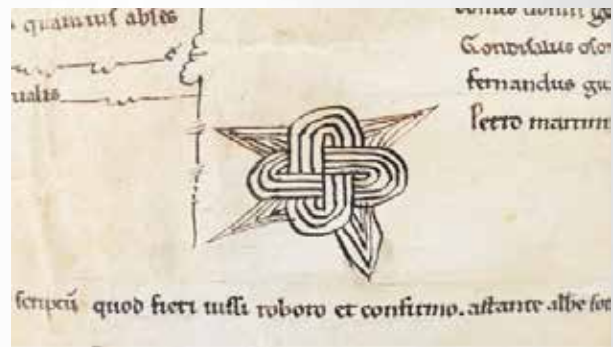 quamuis abses
ualis
Gondisaluus
fernandus
Petro martini
scriptū quod fieri iussi roboro et confirmo. astante albe